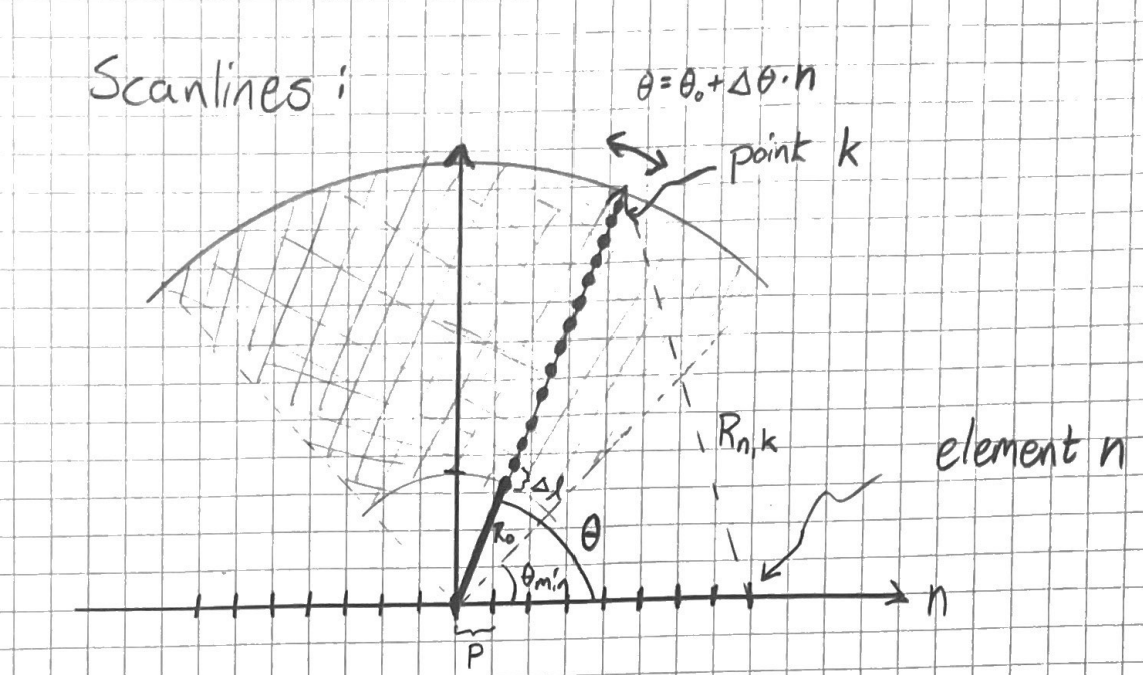 Scanlines:
θ=θ₀+Δθ·n
point k
R_{n,k}
element n
Δl
R₀
θ
θ_{min}
n
P